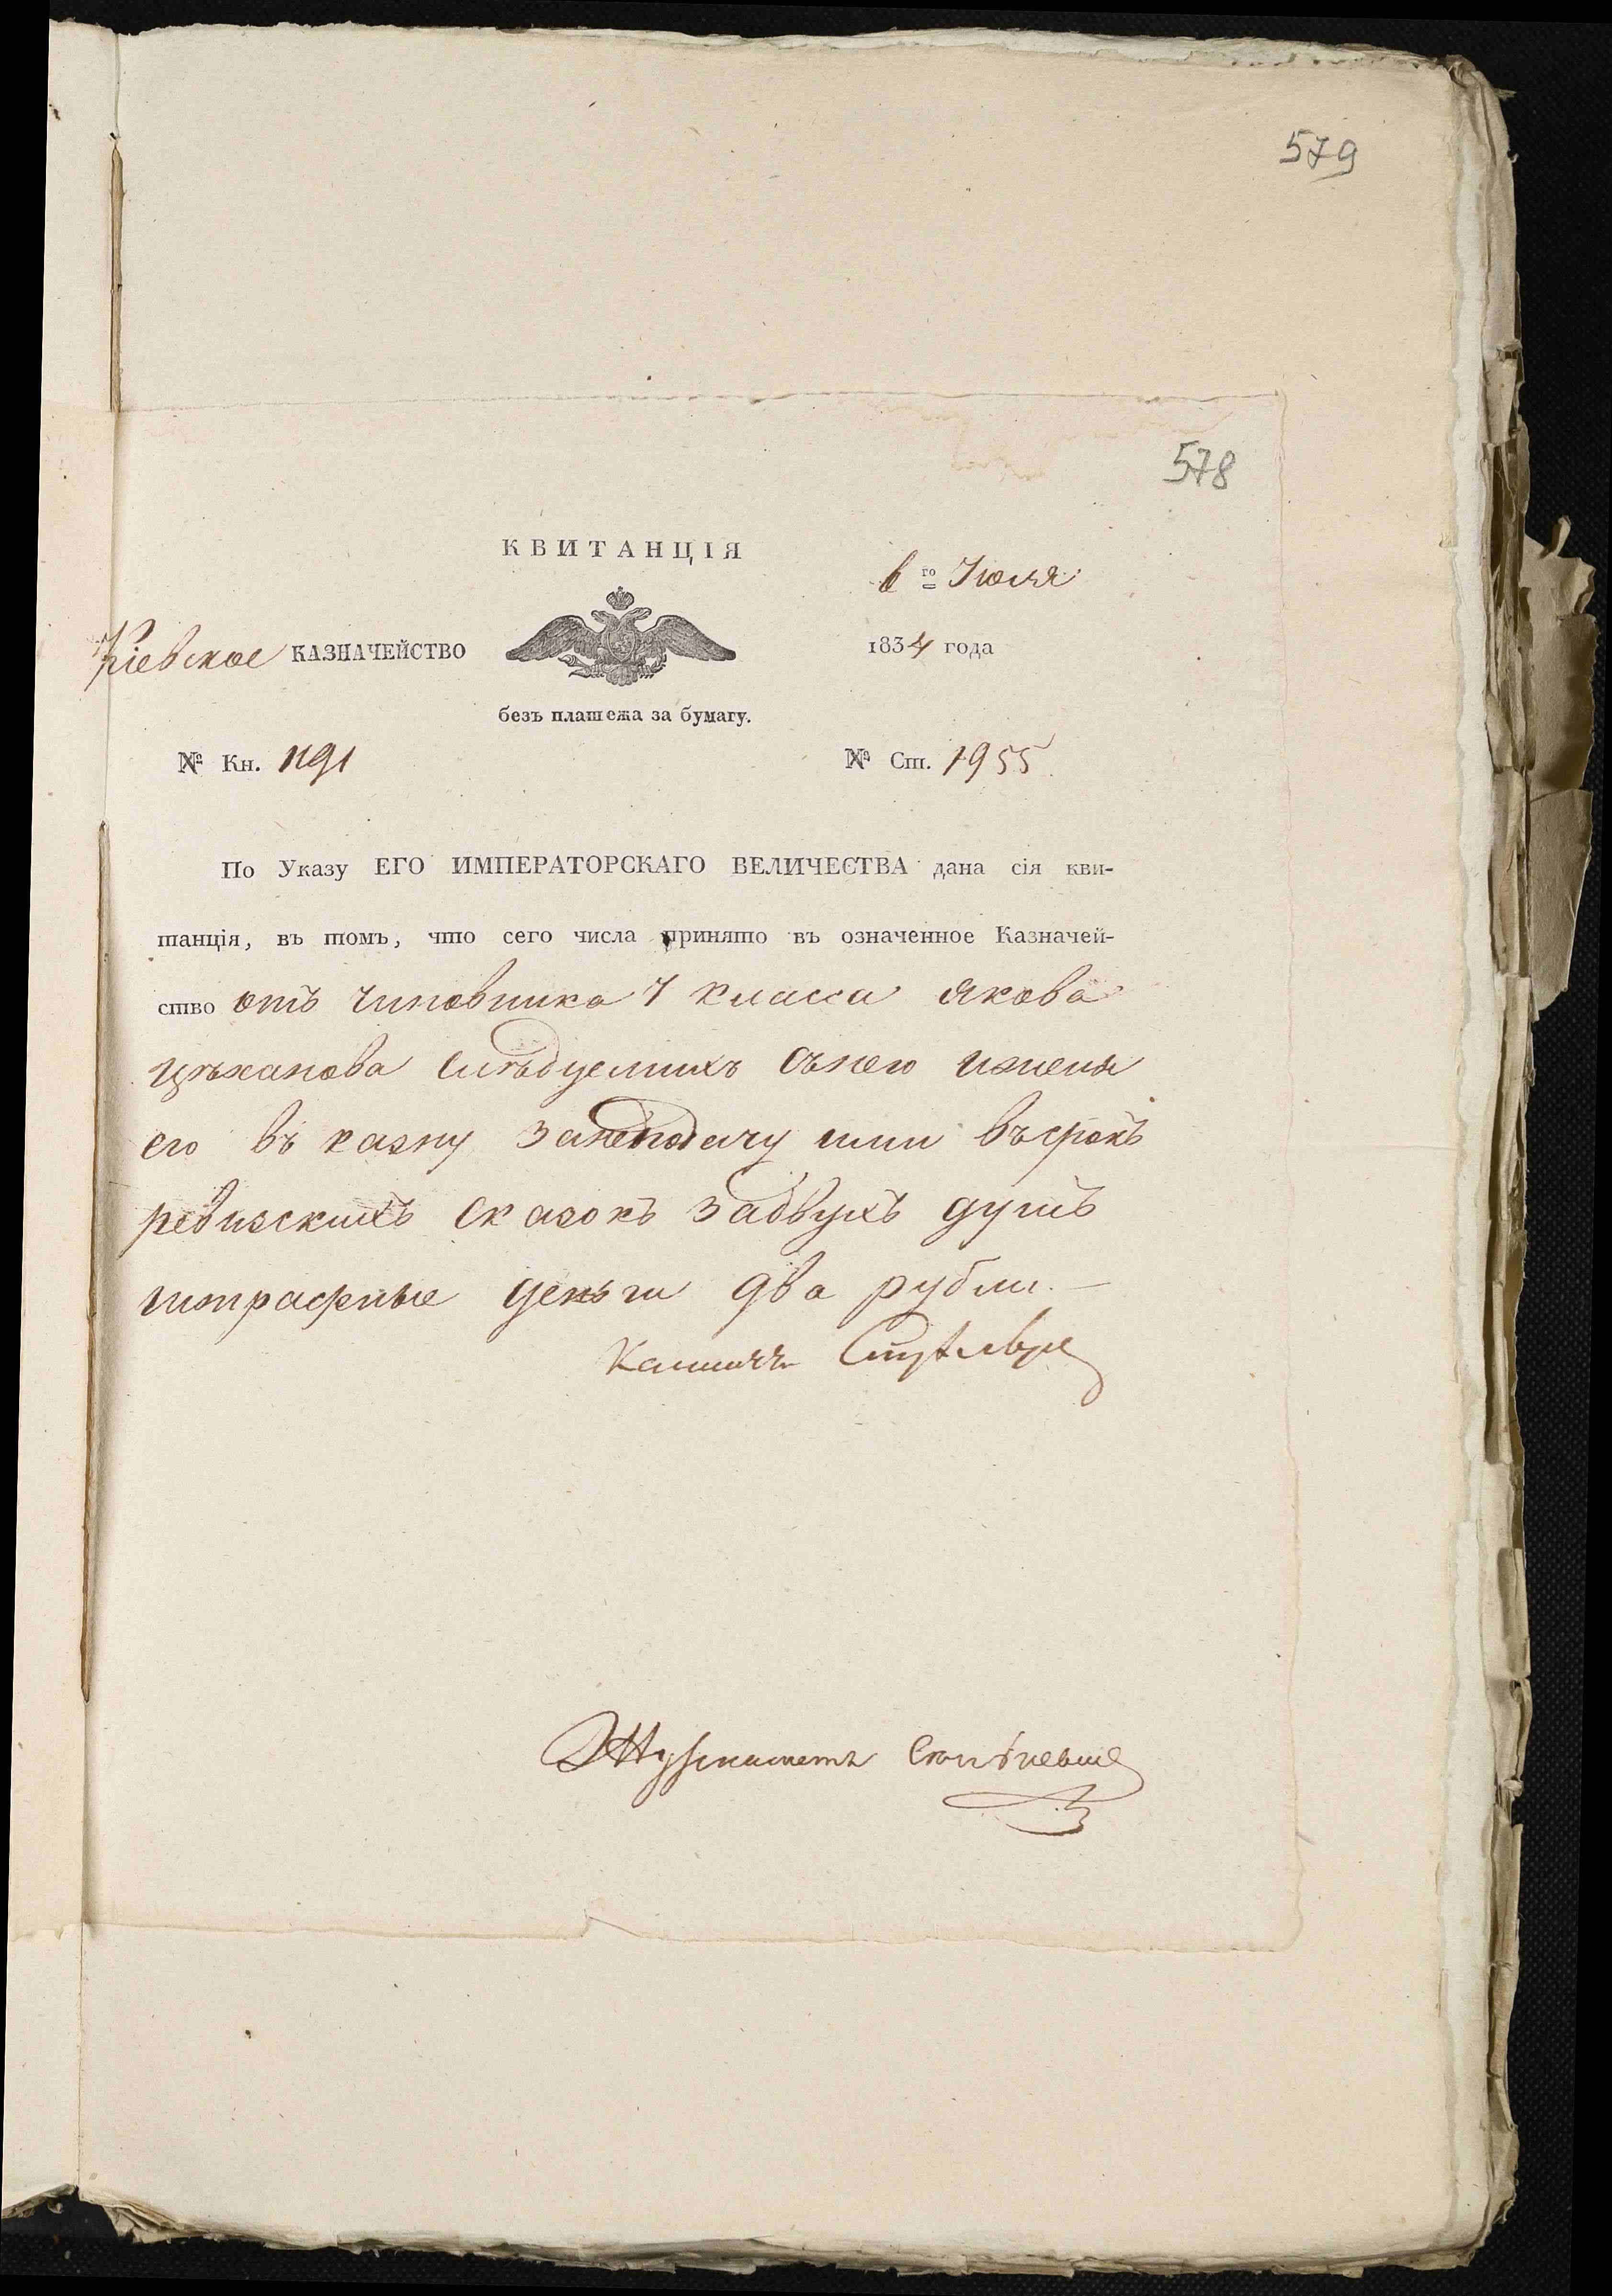 579
578
КВИТАНЦІЯ
6го Июля
Кіевское КАЗНАЧЕЙСТВО
1834 года
безъ платежа за бумагу.
№ Кн. 1191
№ Ст. 1955
По Указу ЕГО ИМПЕРАТОРСКАГО ВЕЛИЧЕСТВА дана сія кви-
танція, въ томъ, что сего числа принято въ означенное Казначей-
ство отъ чиновника 7 класса Якова
Цѣханова слѣдуемихъ сънего имены
его въ казну занеподачу ими въсрокъ
ревизскихъ сказокъ задвухъ душъ
штрафные деньги два рубли. —